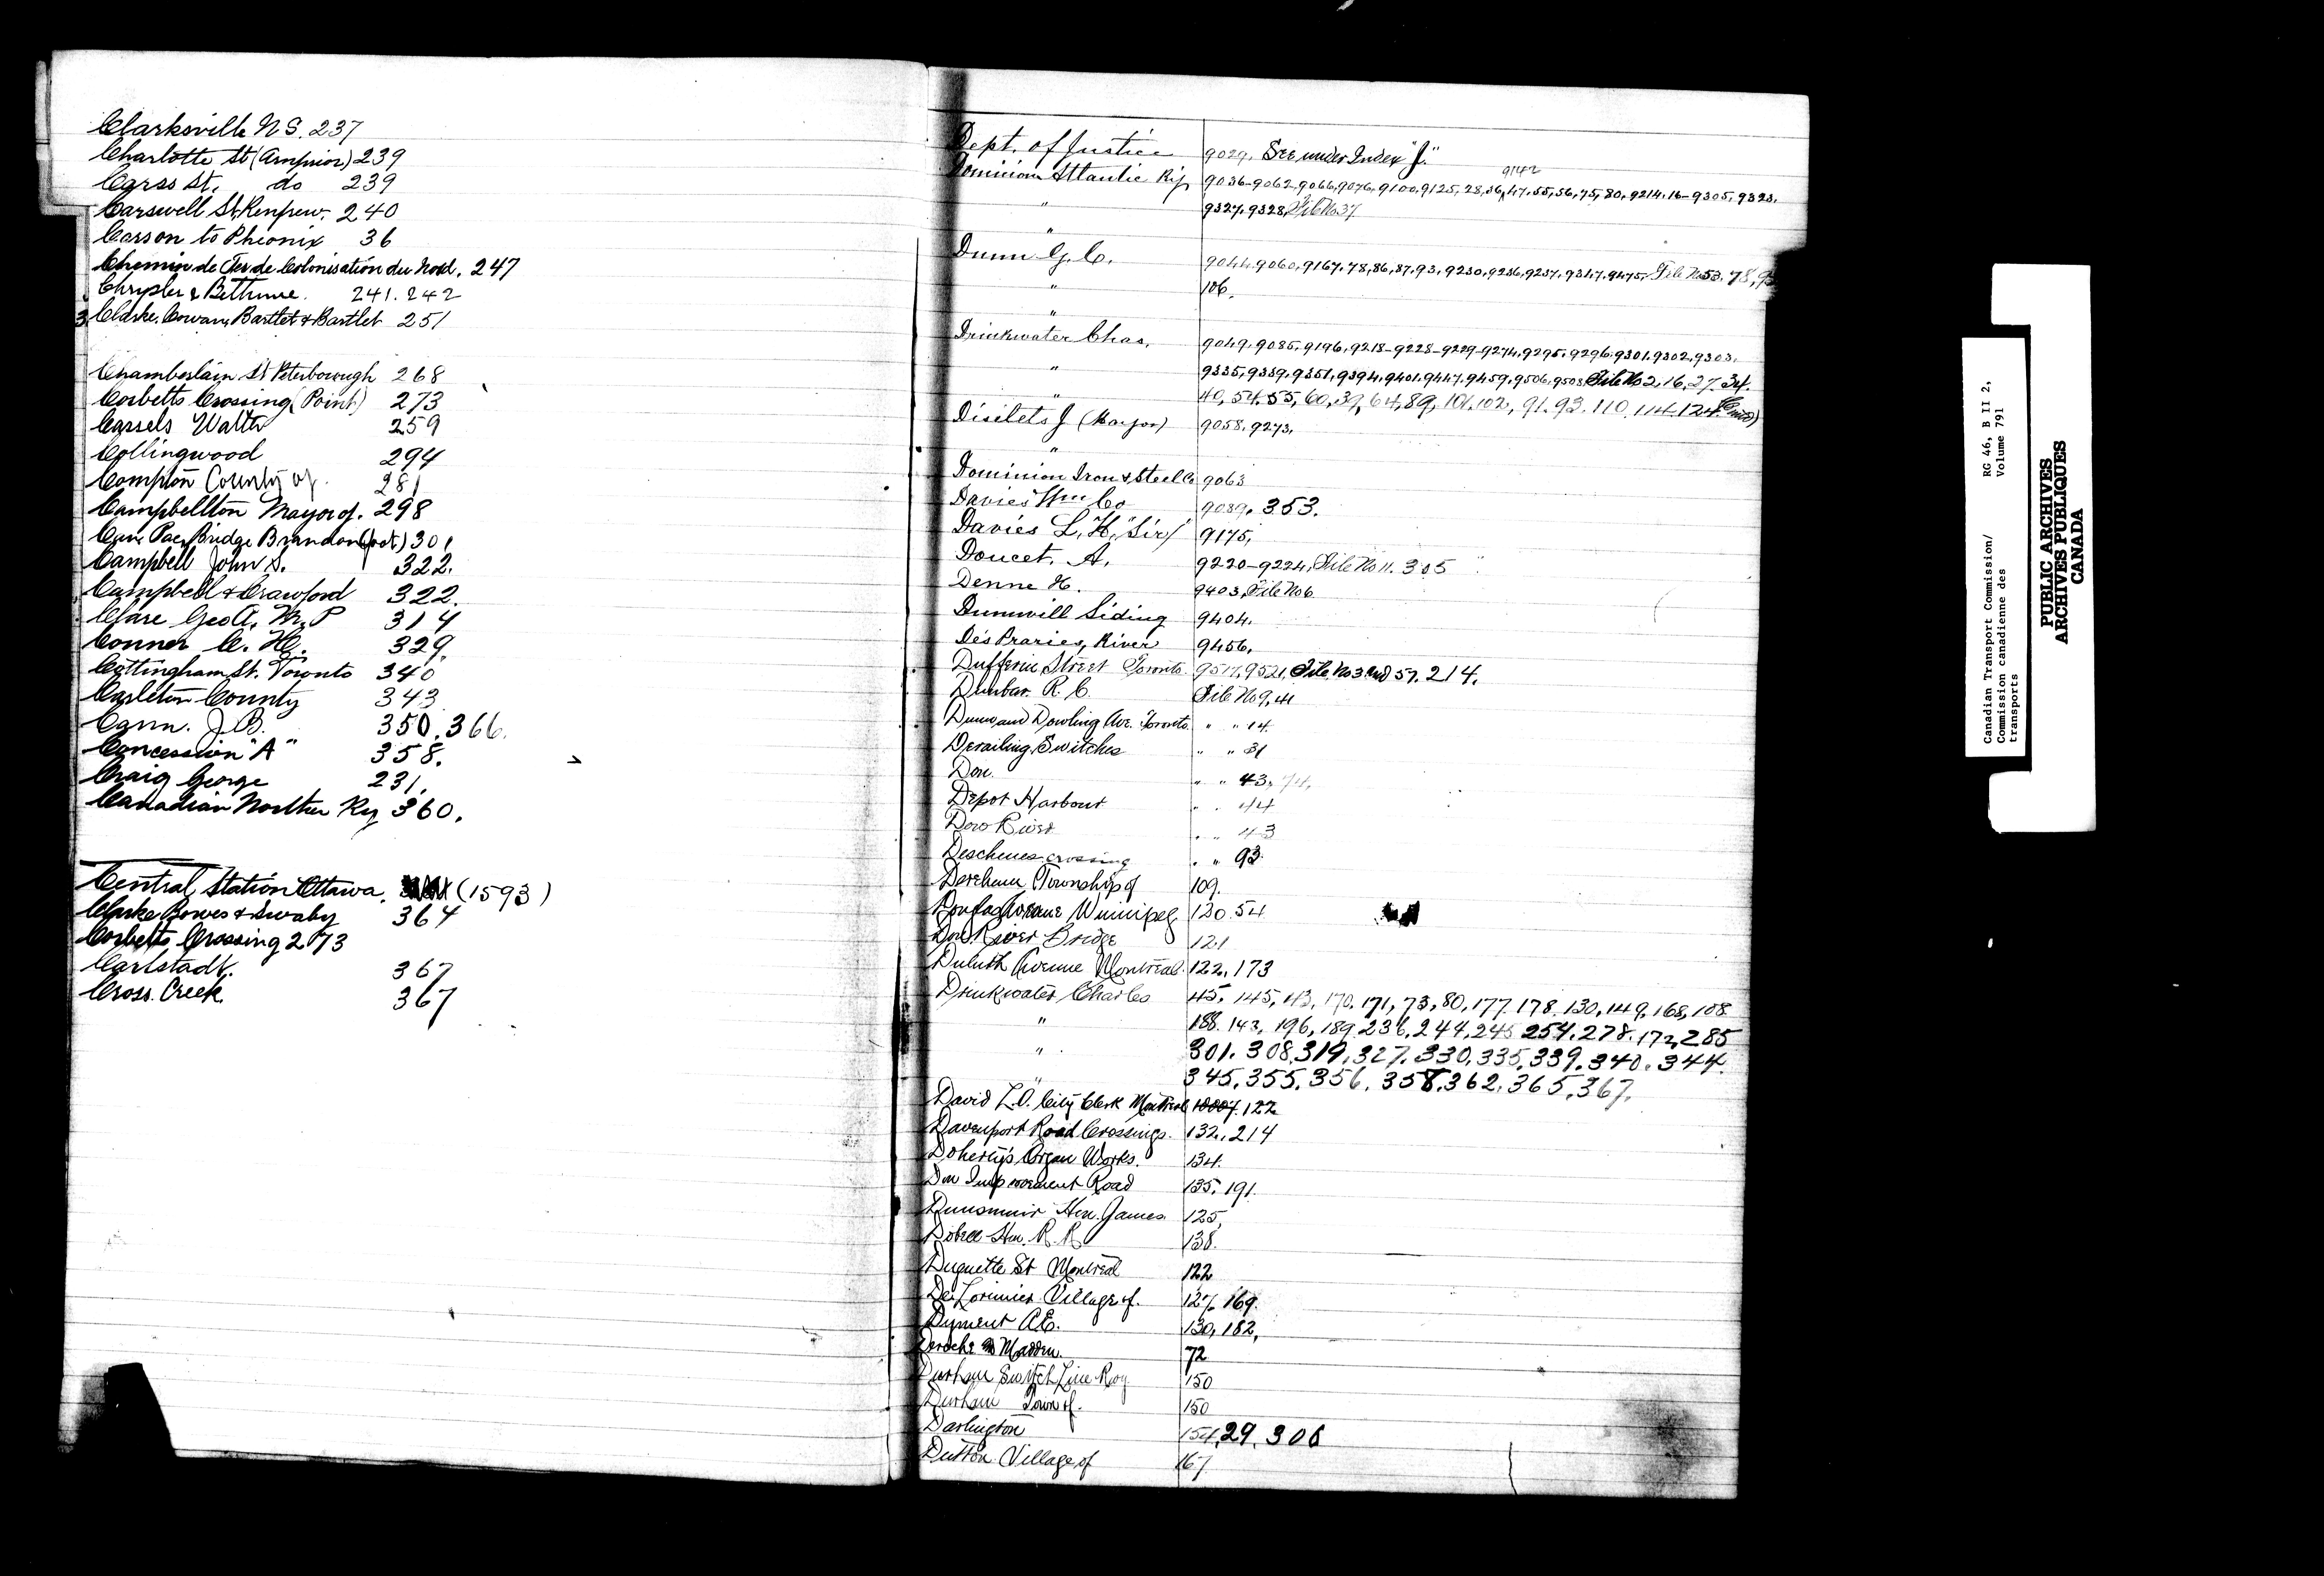 Clarksville N S. 237
Charlotte St (Arnprior) 239
Carss St. do 239
Carswell St. Renfrew. 240
Carson to Pheonix 36
Chemin de Fer de Colonisation du Nord. 247
Chrysler & Bethune. 241. 242
Clarke, Cowan, Bartlet & Bartlet 251
Chamberlain St Peterborough 268
Corbetts Crossing (Point) 273
Cassels Walter 259
Collingwood 294
Compton County of 281
Campbellton Mayor of. 298
Can. Pac. Bridge Brandon (foot) 301
Campbell John S. 322.
Campbell & Crawford 322.
Clare Geo A. M. P 314
Conner C. H. 329.
Cottingham St. Toronto 340
Carleton County 343
Cann. J. B. 350. 366.
Concession "A" 358.
Craig George 231.
Canadian Northern Ry 360.
Central Station Ottawa. (1593)
Clarke Bowes & Swaby 364
Corbetts Crossing 273
Carlstadt. 367
Cross. Creek. 367
Dept. of Justice 9029. See under Index "J."
9142
Dominion Atlantic Ry 9036-9062-9066, 9076, 9100, 9125, 28, 36, 47, 55, 56, 75, 80, 9214, 16-9305, 9323.
" 9327, 9328, File No 37
"
Dunn G. C. 9044, 9060, 9167, 78, 86, 87, 93, 9230, 9236, 9237, 9347, 9475, File No 53. 78, 95
" 106.
"
Drinkwater Chas. 9049, 9085, 9196, 9218-9228-9229-9274, 9295, 9296, 9301, 9302, 9303.
" 9335, 9339, 9351, 9394, 9401, 9447, 9459, 9506, 9508, File No 2, 16, 27. 34.
" 40, 54, 55, 60, 39, 64, 89, 101, 102, 91. 93. 110. 114. 124.
Disilets J (Mayor) 9058. 9273.
"
Dominion Iron & Steel Co 9063
Davies Wm Co 9089. 353.
Davies L. H. "Sir" 9175,
Doucet. A. 9220-9224, File No 11. 305
Denne H. 9403, File No 6
Dunnvill Siding 9404.
Des Praries, River 9456.
Dufferin Street Toronto. 9517, 9521, File No 3 and 57. 214.
Dunbar. R. C. File No 9, 41
Dunn and Dowling Ave. Toronto. " " 14.
Derailing Switches " " 31
Don. " " 43. 74.
Depot Harbour " " 44
Don River " " 43
Deschenes crossing " " 93.
Dereham Township of 109.
Douglas Avenue Winnipeg 120. 54
Don River Bridge 121
Duluth Avenue Montreal. 122, 173
Drinkwater Charles 45. 145, 43, 170. 171, 73, 80, 177. 178. 130, 149, 168, 108
" 188. 143. 196, 189. 236. 244, 245 254. 278. 172, 285
" 301. 308. 319. 327. 330, 335. 339. 340. 344.
" 345. 355. 356. 358. 362. 365. 367.
David L. O. City Clerk Montreal 10007. 122
Davenport Road Crossings. 132, 214
Doherty's Organ Works. 134.
Don Improvement Road 135. 191.
Dunsmuir Hon. James. 125,
Dobell Hon. R. R 138.
Duquette St Montreal 122
De Lorimier Village of. 127, 169.
Dyment A. E. 130, 182,
Deroche & Madden. 72
Durham Switch Line Rwy 150
Durham Town of. 150
Darlington 154, 29. 306
Dutton Village of 167
Canadian Transport Commission/
Commission canadienne des
transports
RG 46, B II 2,
Volume 791
PUBLIC ARCHIVES
ARCHIVES PUBLIQUES
CANADA